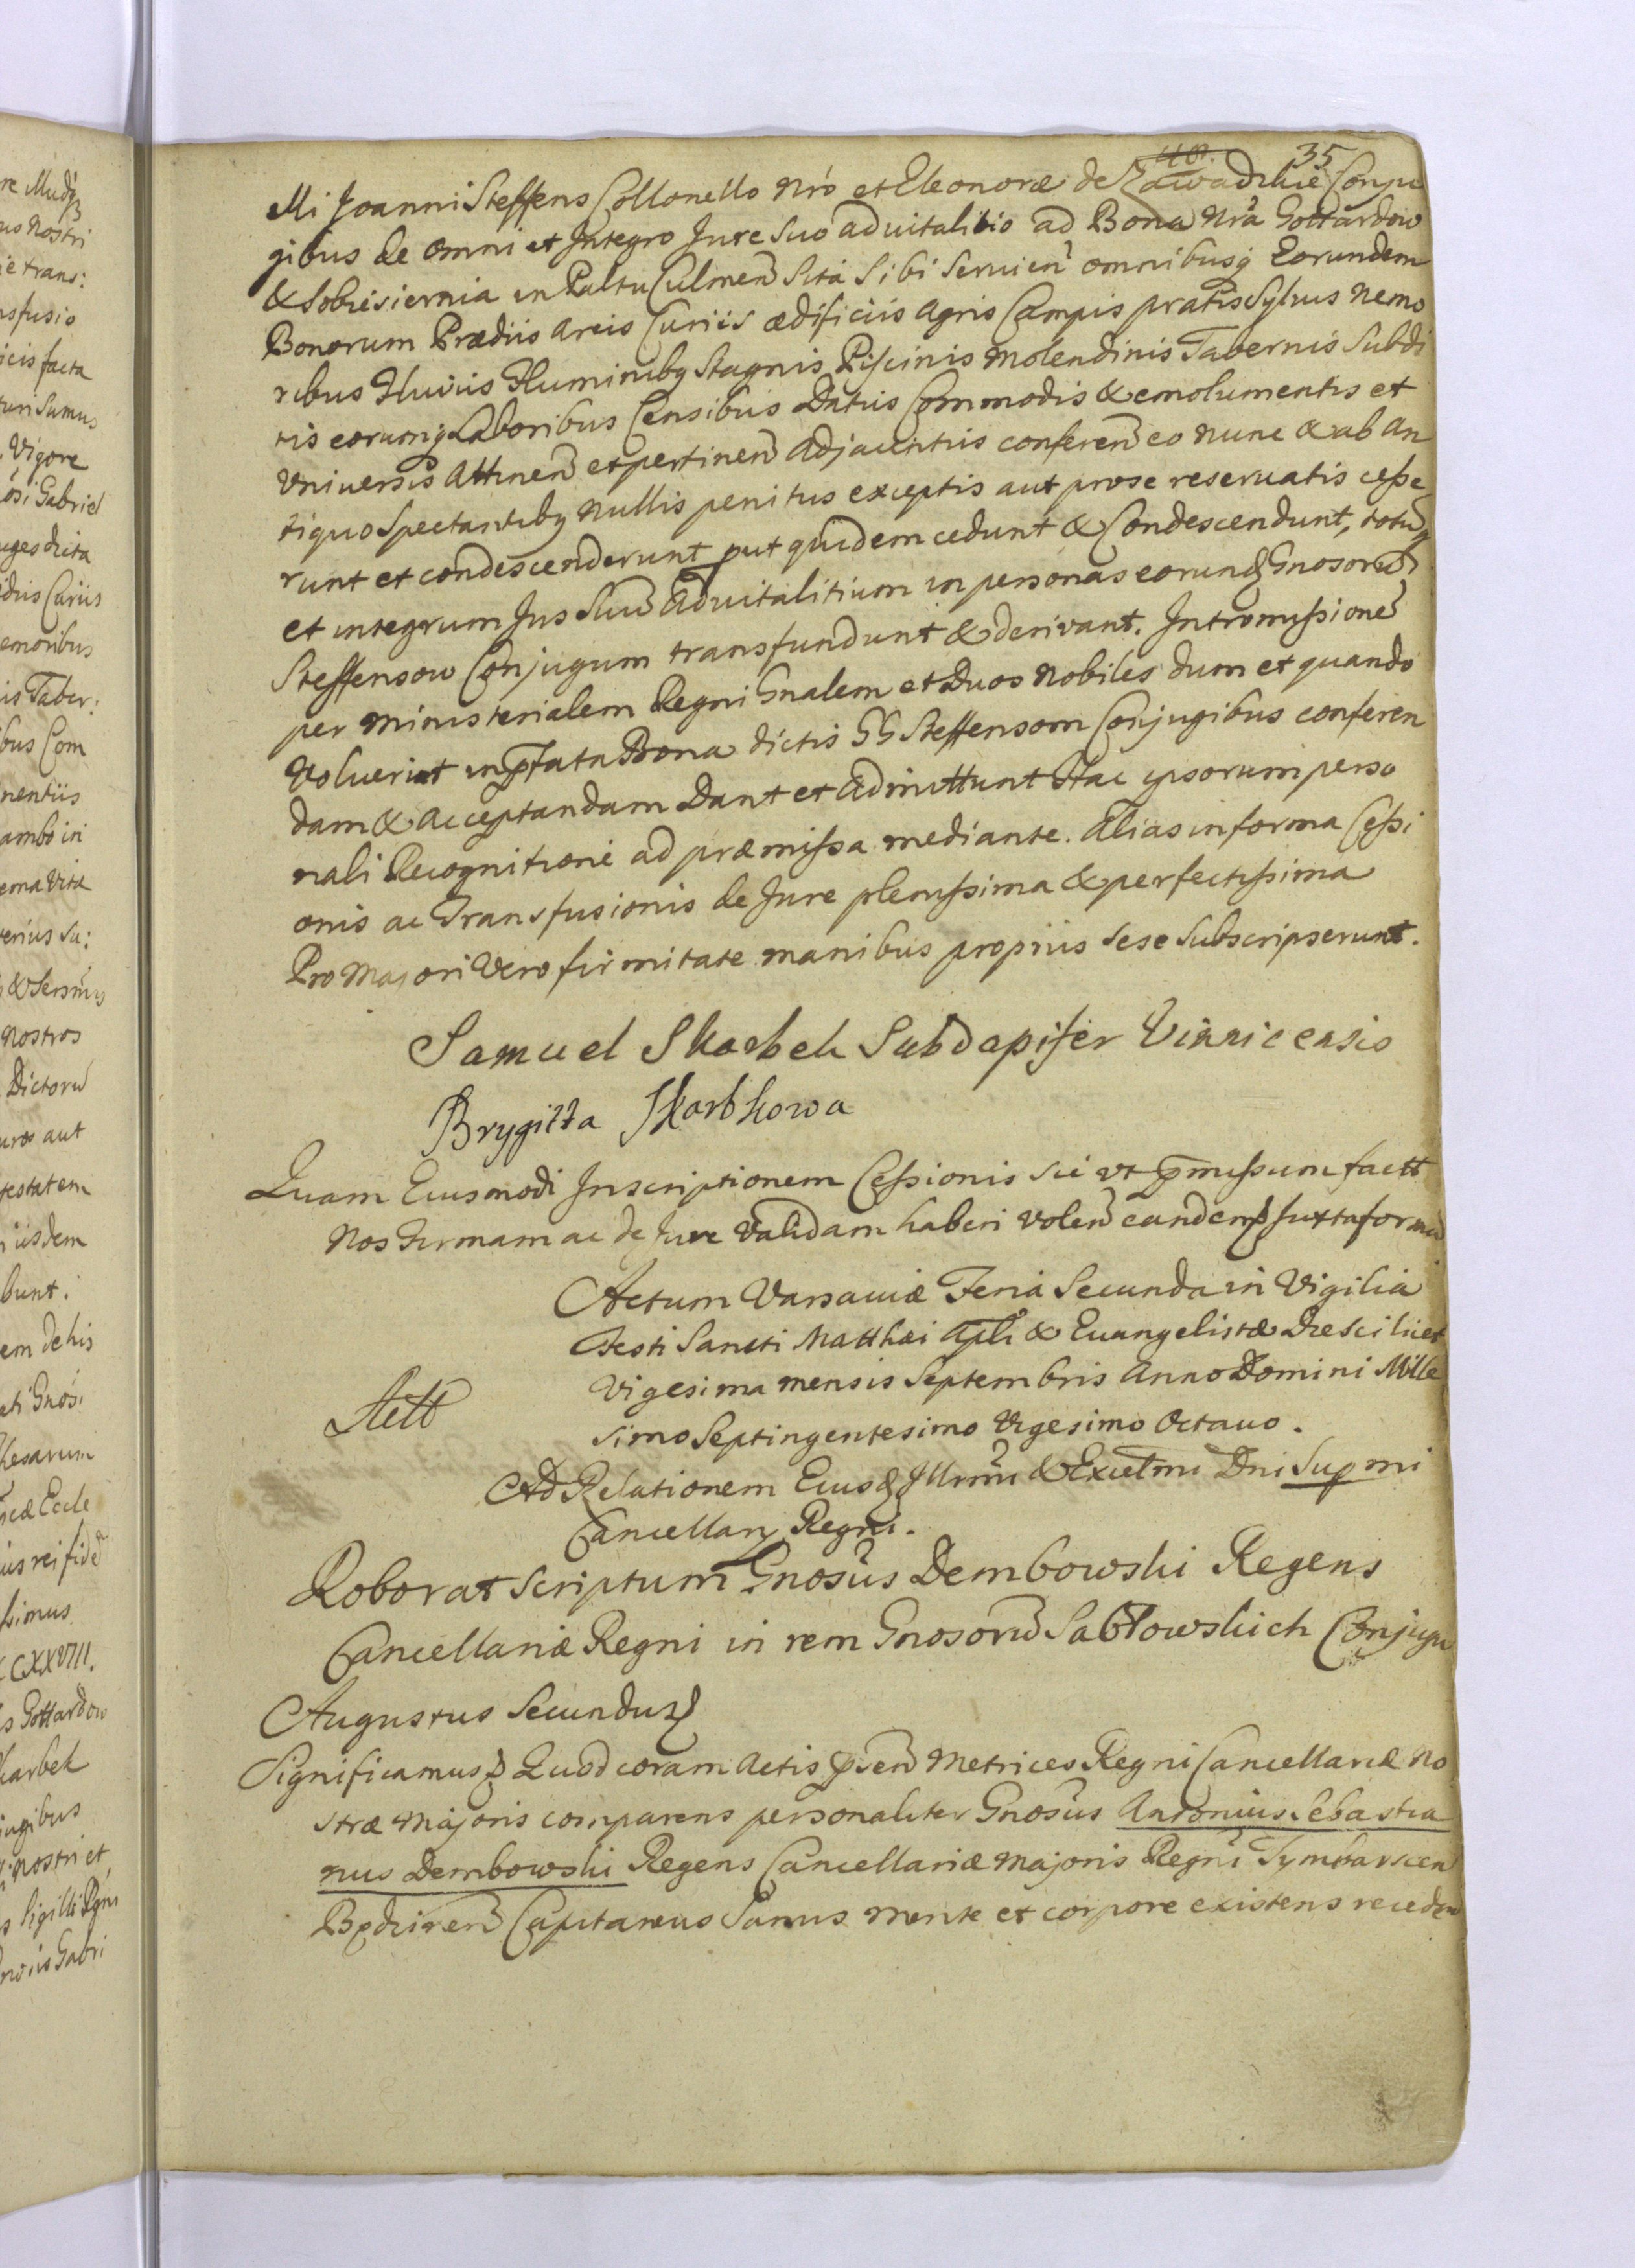 40. 35
Mi Joanni Steffens Collonello Nro et Eleonoræ de Zawadzkie Conju
gibus de omni et Integro Jure Suo advitalitio ad Bona Nra Gottardow
& Sobiesiernia in Paltu Culmen Sita Sibi Servien omnibusq Eorundem
Bonorum Prædiis Areis Curiis ædificiis Agris Campis pratis Sylvis Nemo
ribus Fluviis Fluminibq Stagnis Piscinis Molendinis Tabernis Subdi
tis eorumq Laboribus Censibus Datiis Commodis & emolumentis et
Universis Attinen et pertinen Adjacentiis conferen eo nunc & ab An
tiquo Spectantibq Nullis penitus exceptis aut pro se reservatis cesse
runt et condescenderunt put quidem cedunt & Condescendunt, totuq
et integrum Jus Suu Advitalitium in personas eorund Gnosoru
Steffensow Conjugum transfundunt & derivant. Intromissione
per Ministerialem Regni Gnalem et Duos Nobiles dum et quando
Voluerint in pfata Bona dictis GG Steffensom Conjugibus conferen
dam & Acceptandam Dant et Admittunt Hac ipsorum perso
nali Recognitione ad præmissa mediante. Alias in forma Cessi
onis ac Transfusionis de Jure plenissima & perfectissima
Pro Majori Vero firmitate manibus propriis sese Subscripserunt.
Samuel Skarbek Subdapifer Vinnicensis
Brygitta Skarbkowa
Quam Eiusmodi Inscriptionem Cessionis sic vt pmissum factt
Nos Firmam ac de Jure Validam haberi volen eandem Juxta forma
Actum Varsaviæ Feria Secunda in Vigilia
Festi Sancti Matthæi Apli & Euangelistæ Die Scilicet
Vigesima mensis Septembris Anno Domini Mille
simo Septingentesimo Vigesimo Octavo.
Actt
Ad Relationem Eiusd Illrmi & Excellmi Dni Supmi
Cancellary Regni.
Roborat scriptum Gnosus Dembowski Regens
Cancellariæ Regni in rem Gnosoru Sabłowskich Conjugu
Augustus Secundus
Significamus Quod coram Actis psen Metrices Regni Cancellariæ No
stræ Majoris comparens personaliter Gnosus Antonius Sebastia
nus Dembowski Regens Cancellariæ Majoris Regni Tymbarscen
Capitaneus Sanus mente et corpore existens receden